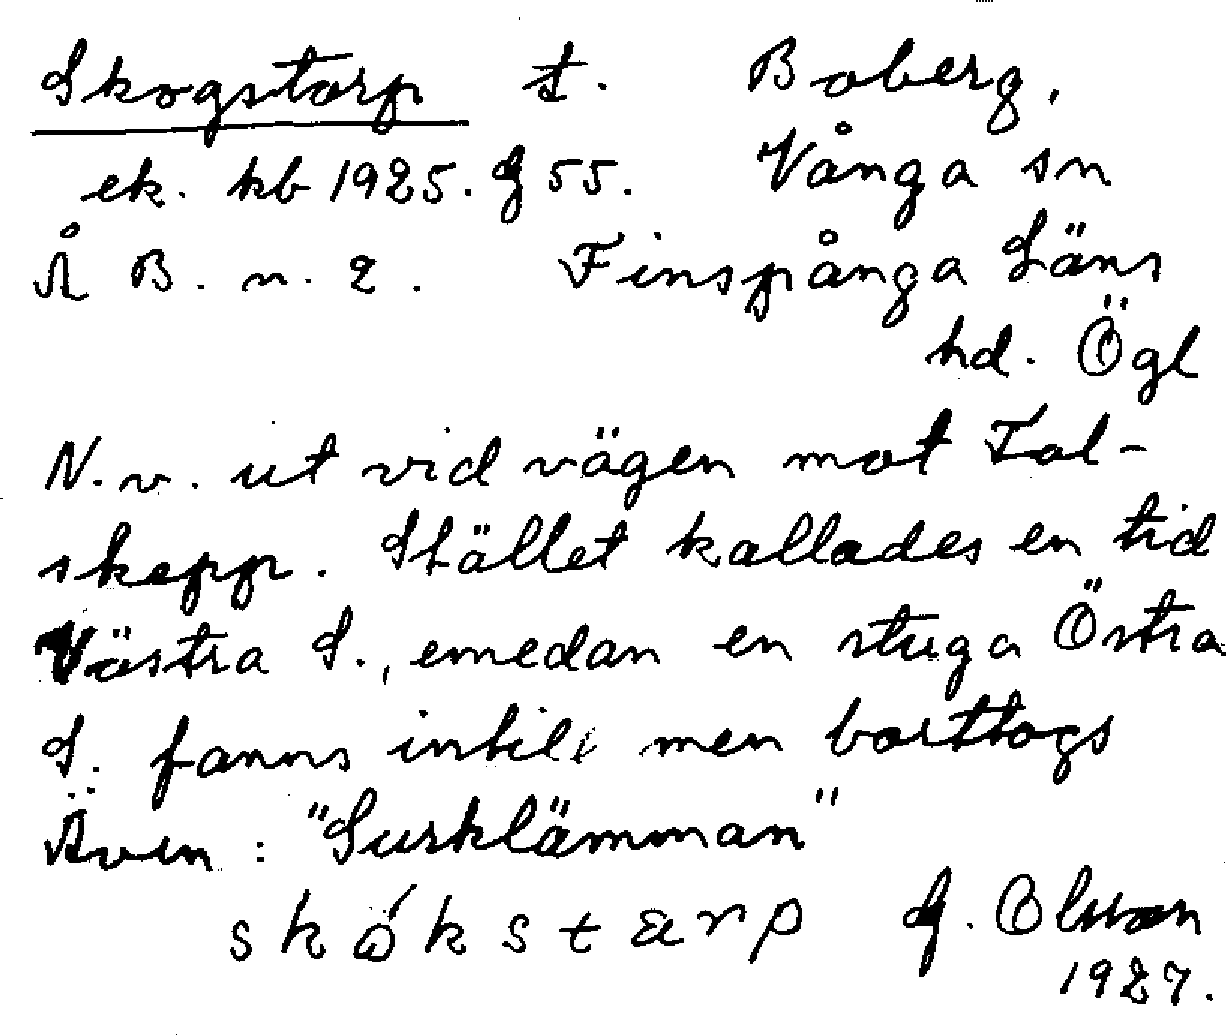 Skogstorp t. Boberg,
ek. kb 1925. G 55. Vånga sn
Å B. n. 2. Finspånga Läns
hd. Ögl
N. v. ut vid vägen mot Tol-
skepp. Stället kallades en tid
Västra S., emedan en stuga Östra
S. fanns intill men borttogs
Även: "Surklämman"
skókstarp G. Olsson
1927.